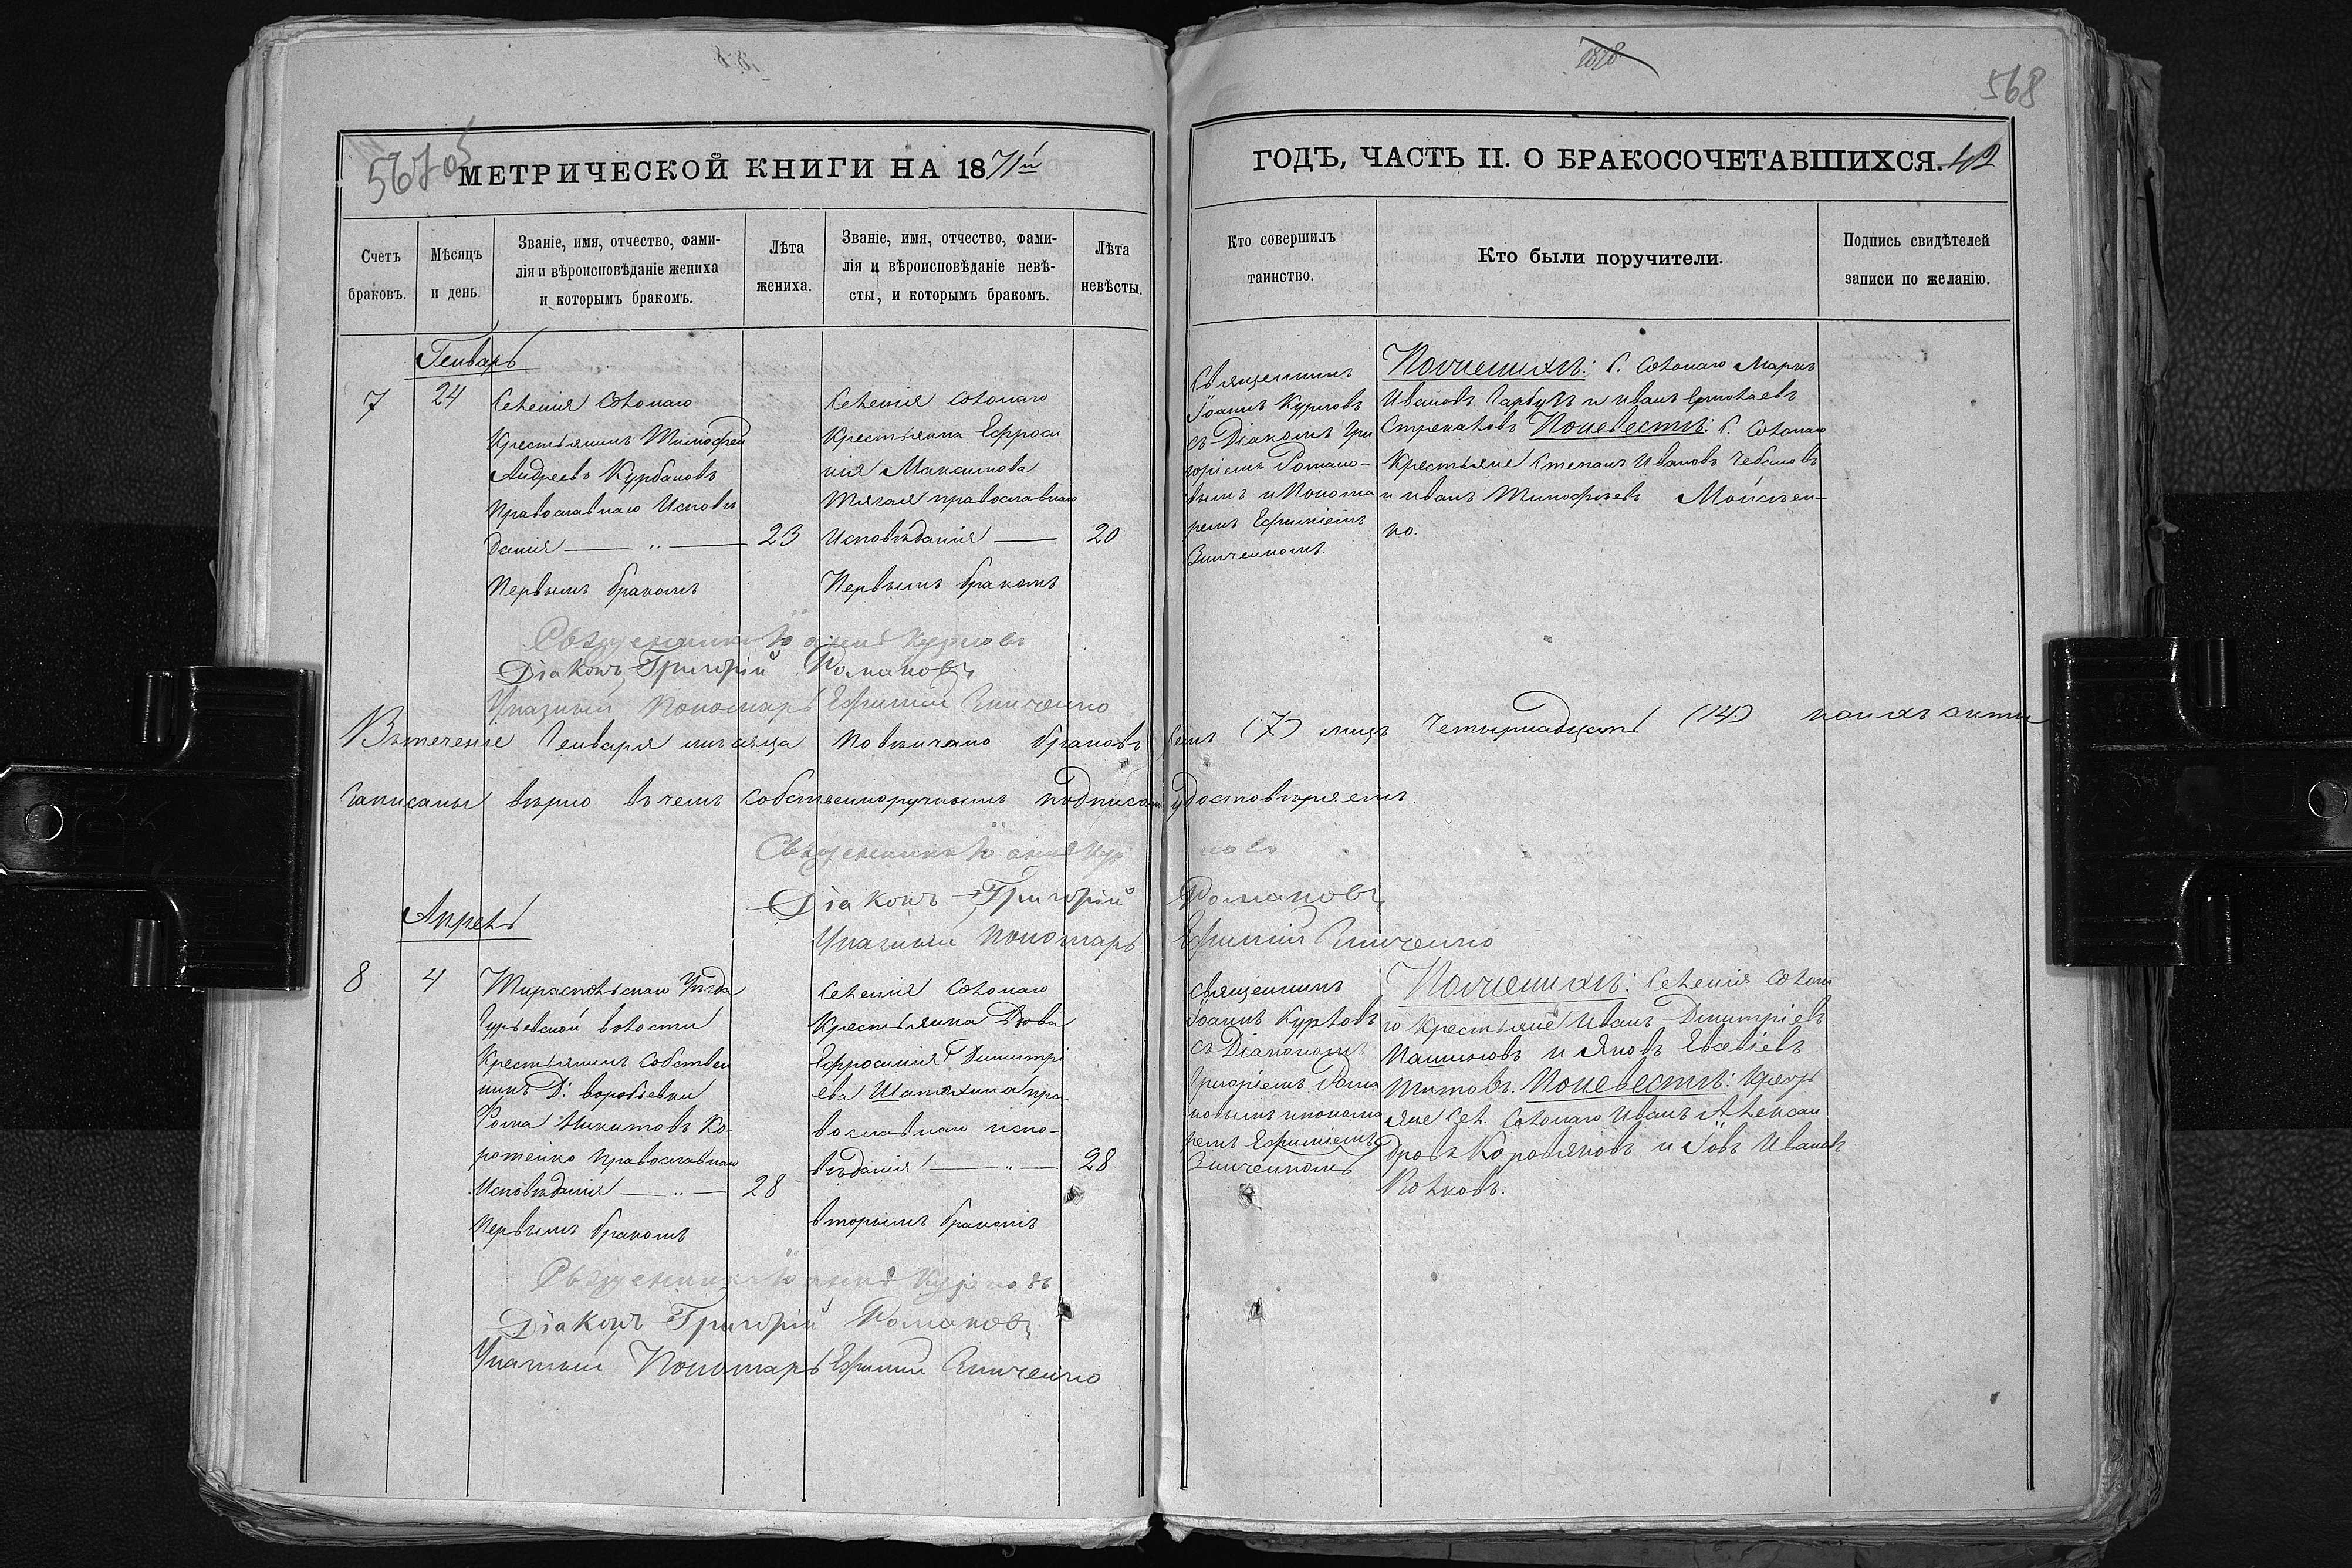 1878
568
567 об
МЕТРИЧЕСКОЙ КНИГИ НА 1871й
ГОДЪ, ЧАСТЬ II. О БРАКОСОЧЕТАВШИХСЯ. 42
Счетъ
браковъ.
Мѣсяцъ
и день.
Званіе, имя, отчество, фами-
лія и вѣроисповѣданіе жениха
и которымъ бракомъ.
Лѣта
жениха.
Званіе, имя, отчество, фами-
лія и вѣроисповѣданіе невѣ-
сты, и которымъ бракомъ.
Лѣта
невѣсты.
Кто совершилъ
таинство.
Кто были поручители.
Подпись свидѣтелей
записи по желанію.
Генварь
7
24
Селенія Солонаго
Крестьянинъ Тимофей
Андреевъ Курбановъ
Православнаго Исповѣ
данія — „ —
23
Первымъ бракомъ
Селенія Солонаго
Крестьянка Ефроси
нія Максимова
Тягая православнаго
Исповѣданія —
20
Первымъ бракомъ
Священникъ
Іоаннъ Курловъ
съ Діакономъ Гри
горіемъ Романо-
вымъ и Понома
ремъ Ефиміемъ
Зинченкомъ.
Поженихѣ: С. Солонаго Маркъ
Ивановъ Гарбузъ и Иванъ Ермолаевъ
Стрекаловъ Поневестѣ: С. Солонаго
Крестьяне Степанъ Ивановъ Чебановъ
и Иванъ Тимофѣевъ Мойсѣен-
ко.
Священникъ Іоаннъ Курловъ
Діаконъ Григорій Романовъ
Указный Пономарь Ефимій Зинченко
Втеченіе Генваря мѣсяца повѣнчано браковъ семъ (7) лицъ Четырнадцать (14) какихъ акты
записаны вѣрно въ чемъ собственноручнымъ подписомъ удостовѣряемъ.
Священникъ Іоаннъ Курловъ
Діаконъ Григорій Романовъ
Указный Пономарь Ефимій Зинченко
Апрель
8
4
Тираспольскаго Уѣзда
Гурьевской волости
Крестьянинъ Собствен
никъ Д: Воробьевки
Фома Никитовъ Ко-
ротенко Православнаго
Исповѣданія — „ —
28
Первымъ бракомъ
Селенія Солонаго
Крестьянка Вдова
Ефросинія Димитрі
ева Шатохина пра
вославнаго испо-
вѣданія — „ —
28
вторымъ бракомъ
Священникъ
Іоаннъ Курловъ
съ Діакономъ
Григоріемъ Рома
новымъ и понома
ремъ Ефиміемъ
Зинченкомъ
Поженихѣ: Селенія Солона
го Крестьяне Иванъ Димитріевъ
Пашиновъ и Яковъ Евсевіевъ
Титовъ. Поневестѣ: Кресть
яне Сел. Солонаго Иванъ Алексан
дровъ Коровяковъ и Іовъ Ивановъ
Волковъ.
Священникъ Іоаннъ Курловъ
Діаконъ Григорій Романовъ
Указный Пономарь Ефимій Зинченко